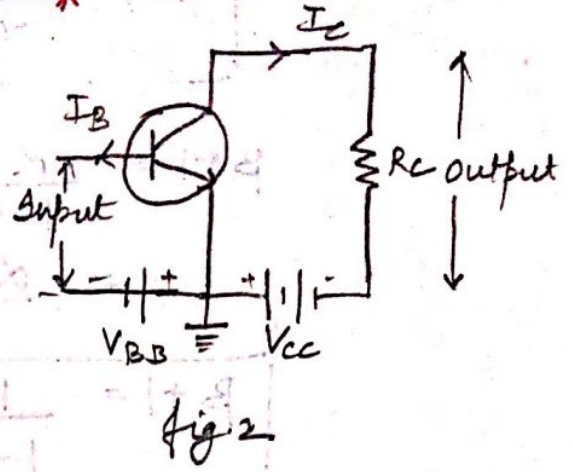 I_C
I_B
R_C Output
Input
- + + -
V_BB V_CC
fig. 2